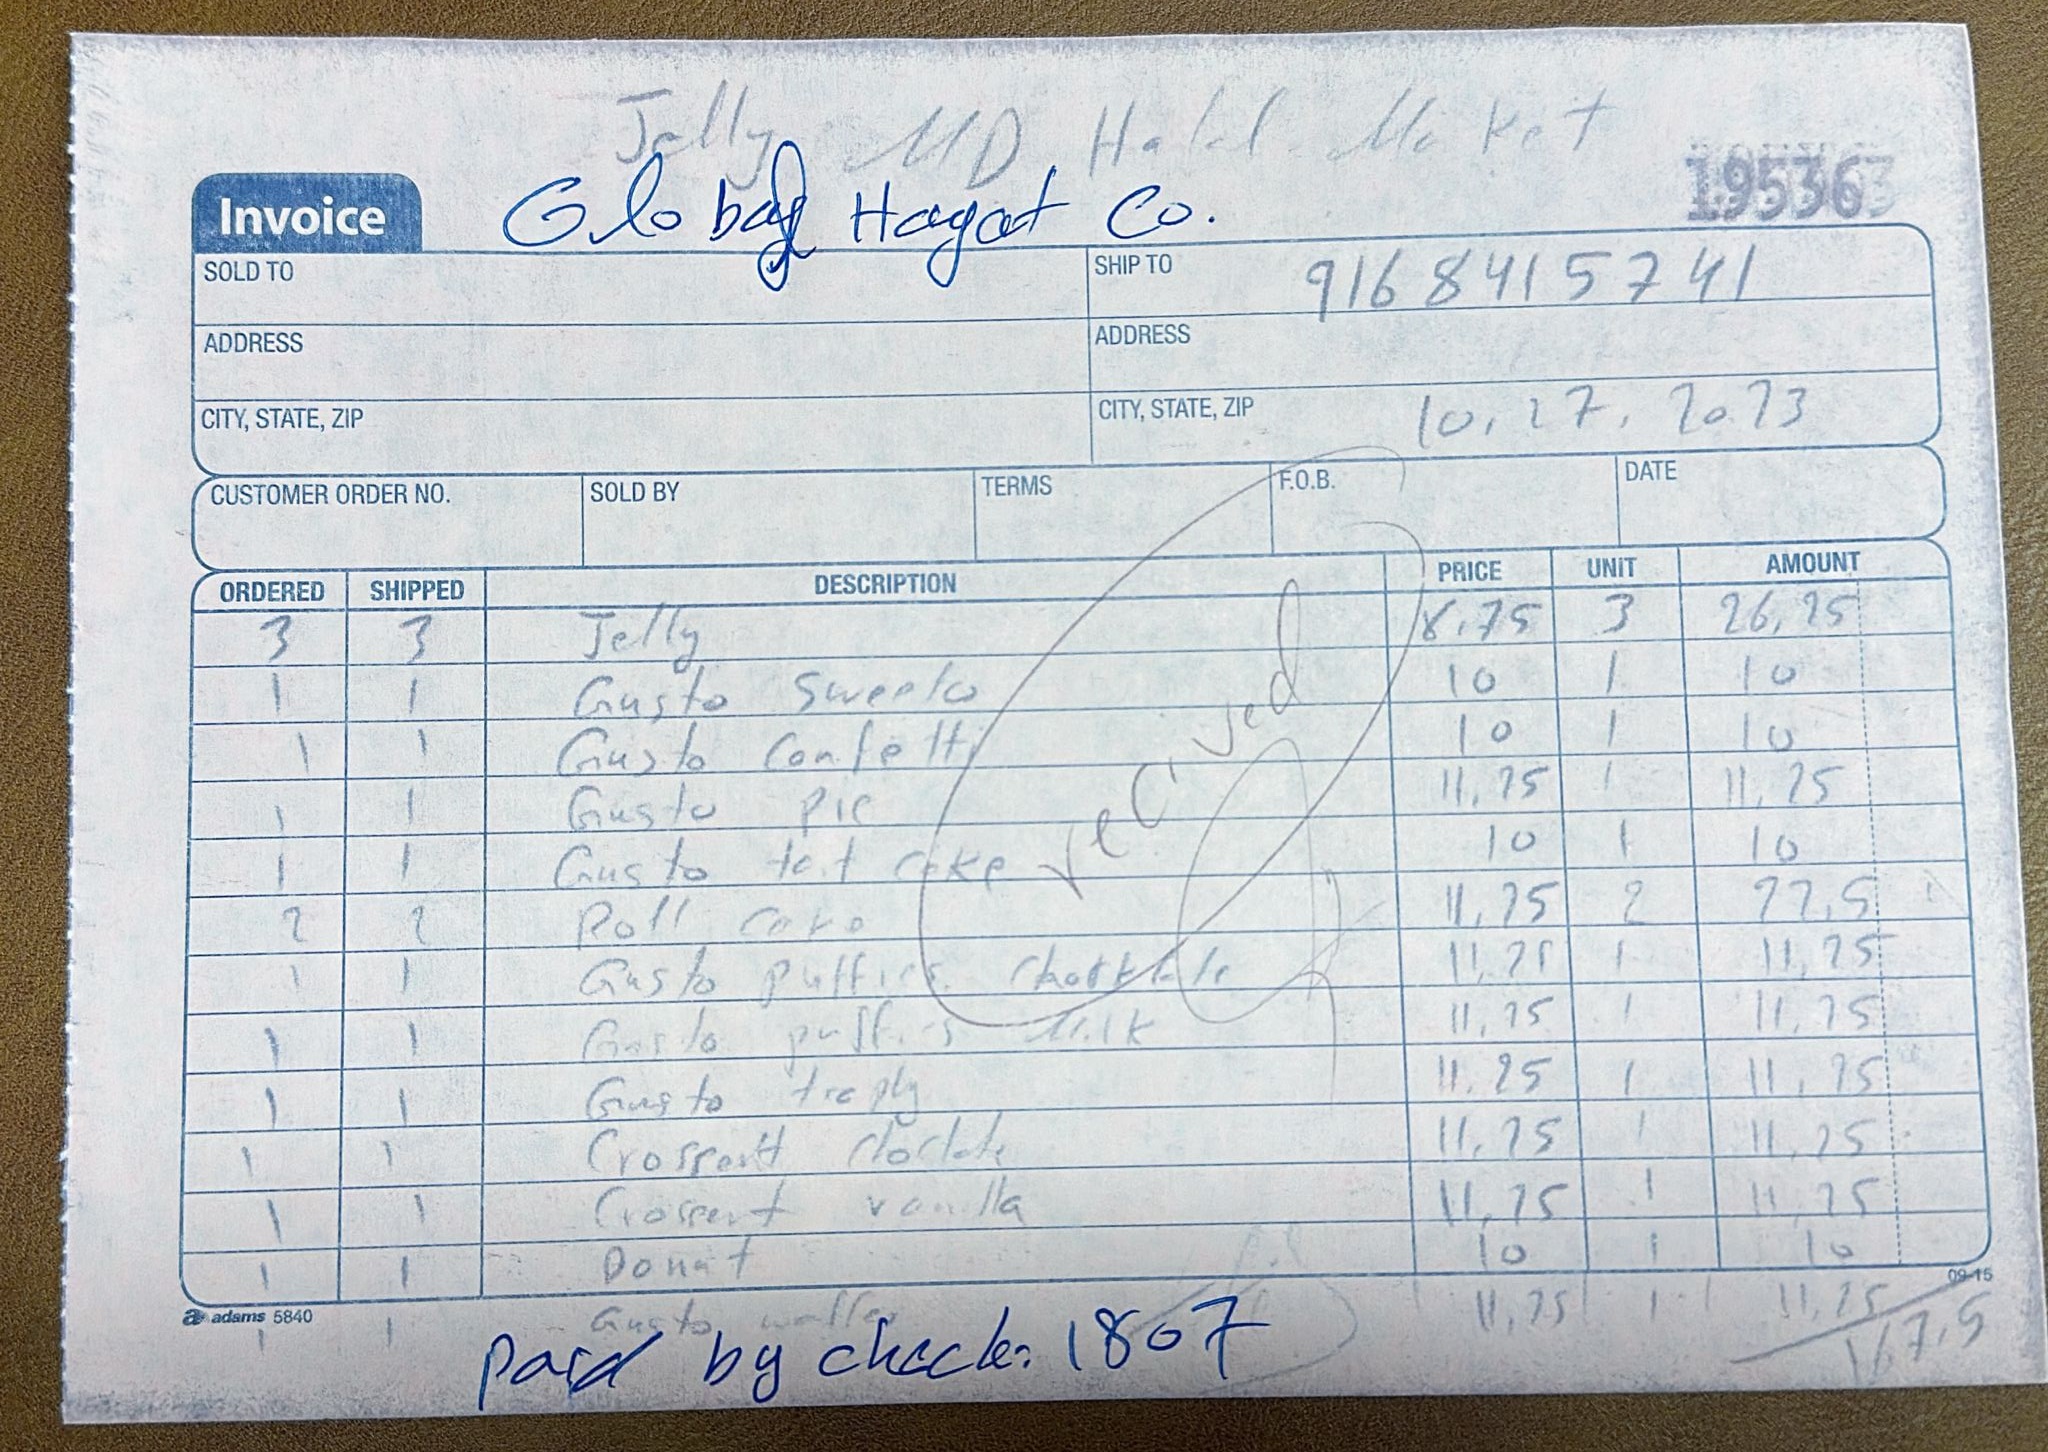 Jelly MD Halal Market
19536
Invoice Global Hayat Co.
SOLD TO SHIP TO 9168415741
ADDRESS ADDRESS
CITY, STATE, ZIP CITY, STATE, ZIP 10, 27, 2023
CUSTOMER ORDER NO. SOLD BY TERMS F.O.B. DATE
ORDERED SHIPPED DESCRIPTION PRICE UNIT AMOUNT
3 3 Jelly 8,75 3 26,25
1 1 Gusto sweeto 10 1 10
1 1 Gusto confetti 10 1 10
1 1 Gusto pie 11,25 1 11,25
1 1 Gusto tart cake 10 1 10
2 2 Roll 11,25 2 22,5
1 1 Gusto puffies 11,25 1 11,25
1 1 Gusto puffies milk 11,25 1 11,25
1 1 Gusto 11.25 1 11,25
1 1 11,25 1 11,25
1 1 vanilla 11,25 1 11,25
1 1 Donat 10 1 10
09-15
adams 5840
1 1 Gusto 11,25 1 11,25
167,5
recived
paid by check: 1807